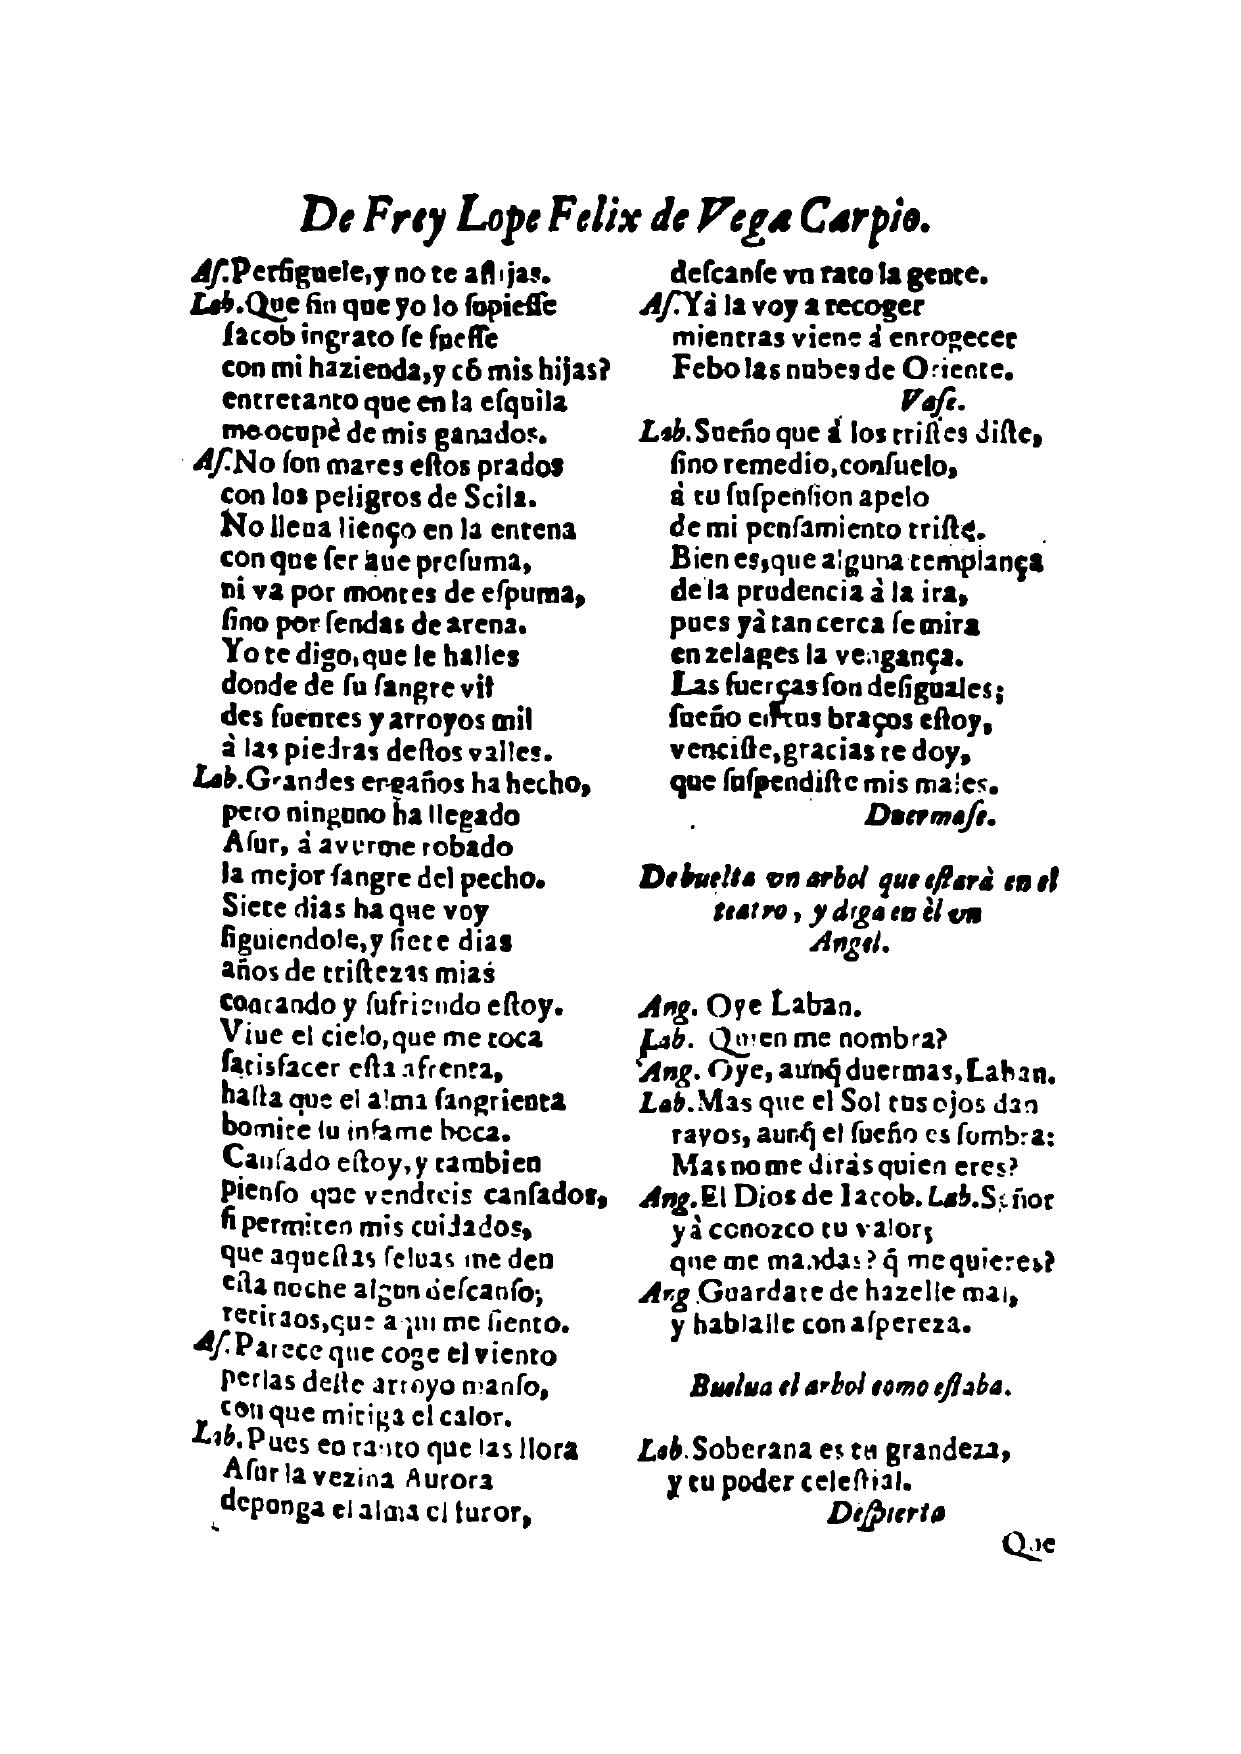 De Frey Lope Felix de Vega Carpio.
Aſ. Perſiguele, y no te aflijas.
Lab. Que ſin que yo lo ſupieſſe
Iacob ingrato ſe fueſſe
con mi hazienda, y cõ mis hijas?
entretanto que en la eſquila
me ocupè de mis ganados.
Aſ. No ſon mares eſtos prados
con los peligros de Scila.
No lleua lienço en la entena
con que ſer aue preſuma,
ni va por montes de eſpuma,
ſino por ſendas de arena.
Yo te digo, que le halles
donde de ſu ſangre vil
des fuentes y arroyos mil
à las piedras deſtos valles.
Lab. Grandes engaños ha hecho,
pero ninguno ha llegado
Aſur, à averme robado
la mejor ſangre del pecho.
Siete dias ha que voy
ſiguiendole, y ſiete dias
años de triſtezas mias
contando y ſufriendo eſtoy.
Viue el cielo, que me toca
ſatisfacer eſta afrenta,
haſta que el alma ſangrienta
bomite ſu infame boca.
Canſado eſtoy, y tambien
pienſo que vendreis canſados,
ſi permiten mis cuidados,
que aqueſtas ſeluas me den
eſta noche algun deſcanſo;
retiraos, que aqui me ſiento.
Aſ. Parece que coge el viento
perlas deſte arroyo manſo,
con que mitiga el calor.
Lab. Pues en tanto que las llora
Aſur la vezina Aurora
deponga el alma el furor,
deſcanſe vn rato la gente.
Aſ. Yà la voy a recoger
mientras viene à enrogecer
Febo las nubes de Oriente.
Vaſe.
Lab. Sueño que à los triſtes diſte,
ſino remedio, conſuelo,
à tu ſuſpenſion apelo
de mi penſamiento triſte.
Bien es, que alguna templança
de la prudencia à la ira,
pues yà tan cerca ſe mira
en zelages la vengança.
Las fuerças ſon deſiguales;
ſueño en tus braços eſtoy,
venciſte, gracias te doy,
que ſuſpendiſte mis males.
Duermaſe.
Debuelta vn arbol que eſtarà en el
teatro, y diga en èl vn
Angel.
Ang. Oye Laban.
Lab. Quien me nombra?
Ang. Oye, aunq̃ duermas, Laban.
Lab. Mas que el Sol tus ojos dan
rayos, aunq̃ el ſueño es ſombra:
Mas no me diràs quien eres?
Ang. El Dios de Iacob. Lab. Señor
yà conozco tu valor;
que me mandas? q̃ me quieres?
Ang. Guardate de hazelle mal,
y hablalle con aſpereza.
Buelua el arbol como eſtaba.
Lab. Soberana es tu grandeza,
y tu poder celeſtial.
Deſpierto
Que